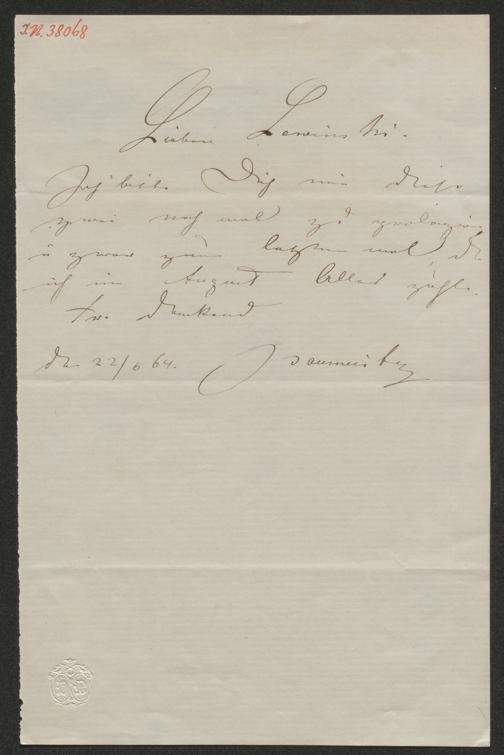 I.N. 38068
Lieber Lewinski.
Ich bitte Dich mir diese
zwei noch mal zu prolongiren
u zwar zum letzten mal, da
ich im August Alles zahle.
Dankend
den 22/6 64.